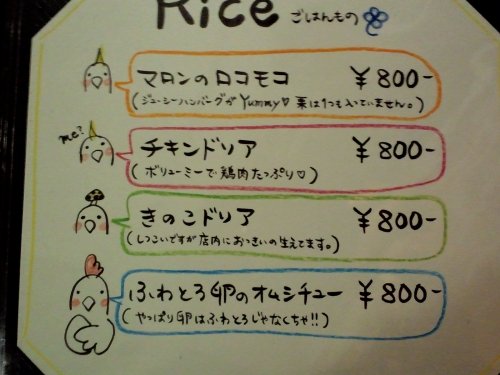 Rice ごはんもの
マロンのロコモコ ¥800-
(ジューシーハンバーグがYummy♡ 栗は1つも入っていません。)
me?
チキンドリア ¥800-
(ボリューミーで鶏肉たっぷり♡)
きのこドリア ¥800-
(しつこいですが店内におっきいの生えてます。)
ふわとろ卵のオムシチュー ¥800-
(やっぱり卵はふわとろじゃなくちゃ!!)